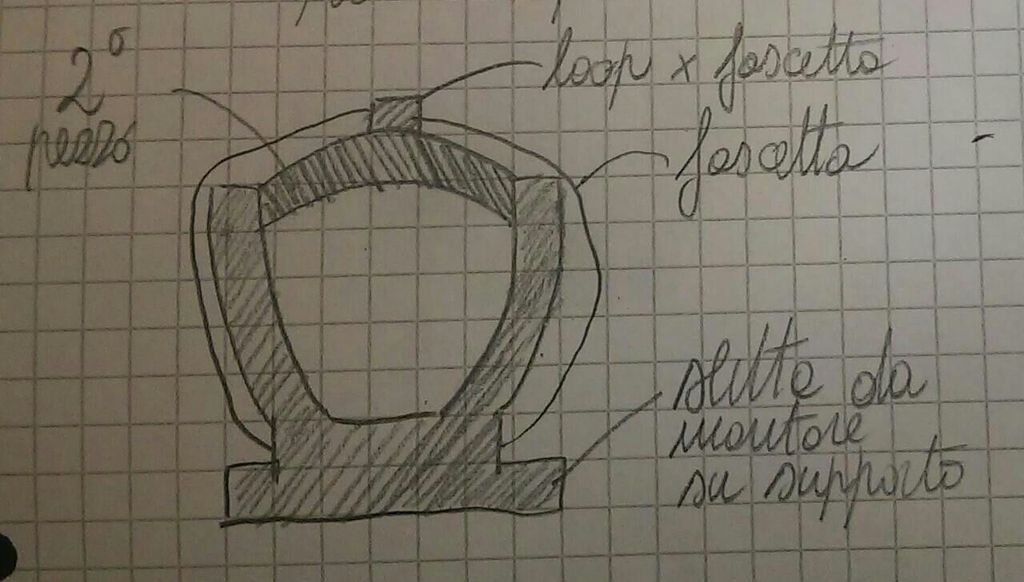 2°
pezzo
loop x fascetta
fascetta
slitta da
montare
su supporto